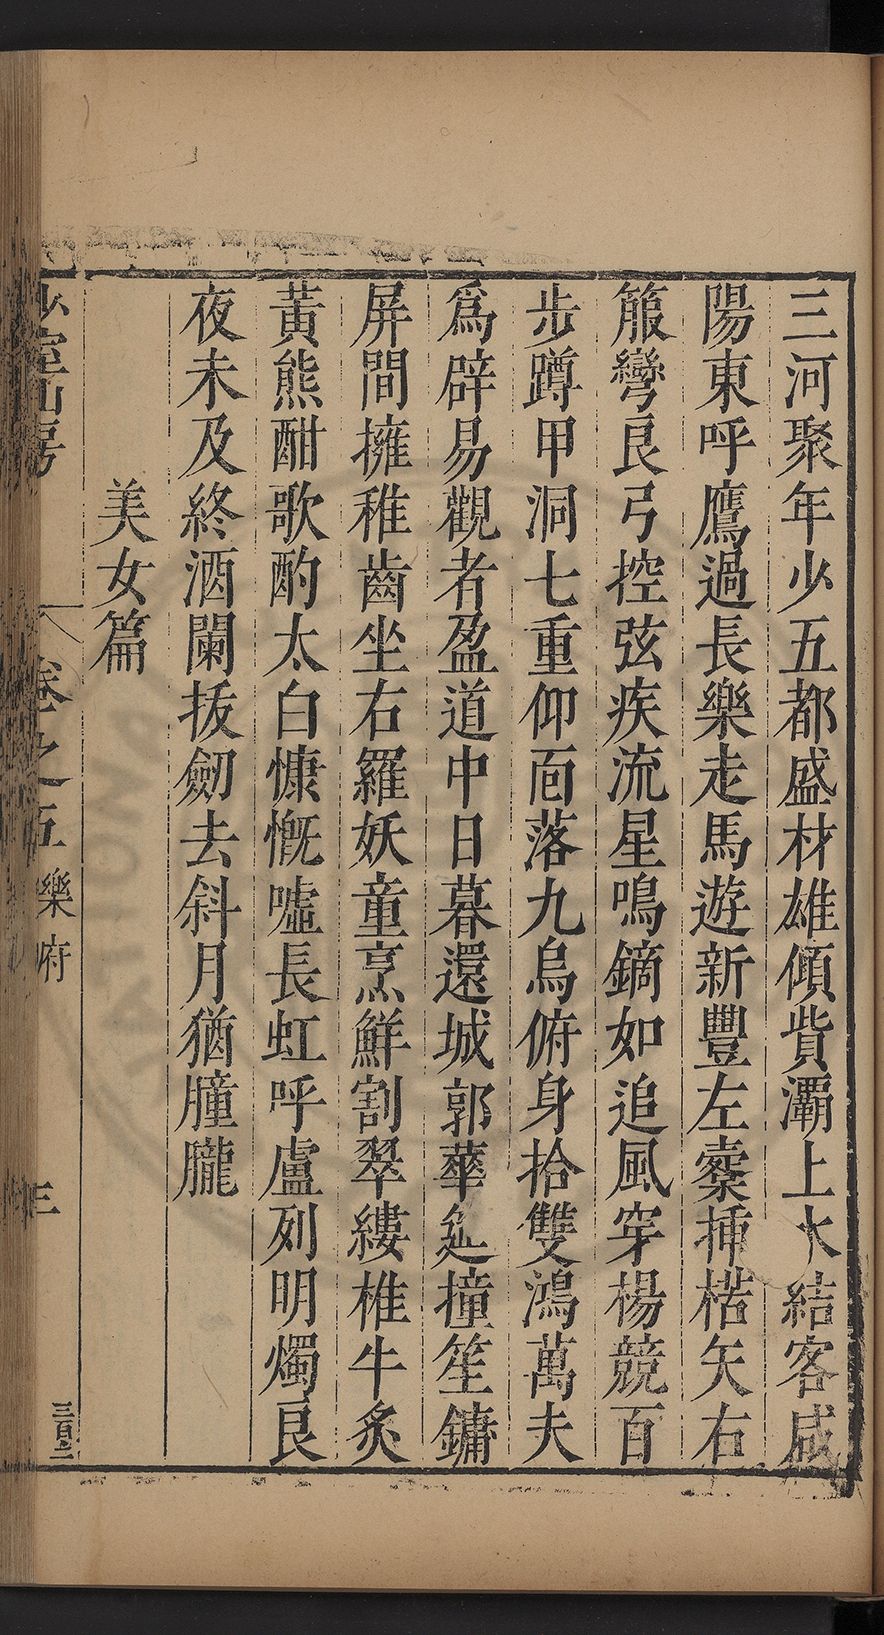 三河聚年少五都盛材雄傾貲灞上水結客咸
陽東呼鷹過長樂走馬遊新豐左櫜揷楛矢右
箙彎良弓控弦疾流星鳴鏑如追風穿楊競百
步蹲甲洞七重仰面落九烏俯身拾雙鴻萬夫
爲辟易觀者盈道中日暮還城郭華筵撞笙鏞
屏間擁稚齒坐右羅妖童烹鮮割翠縷椎牛炙
黃熊酣歌酌太白慷慨噓長虹呼盧列明燭良
夜未及終酒闌拔劒去斜月猶朣朧
美女篇
少室山房
卷之五樂府
三
三百二